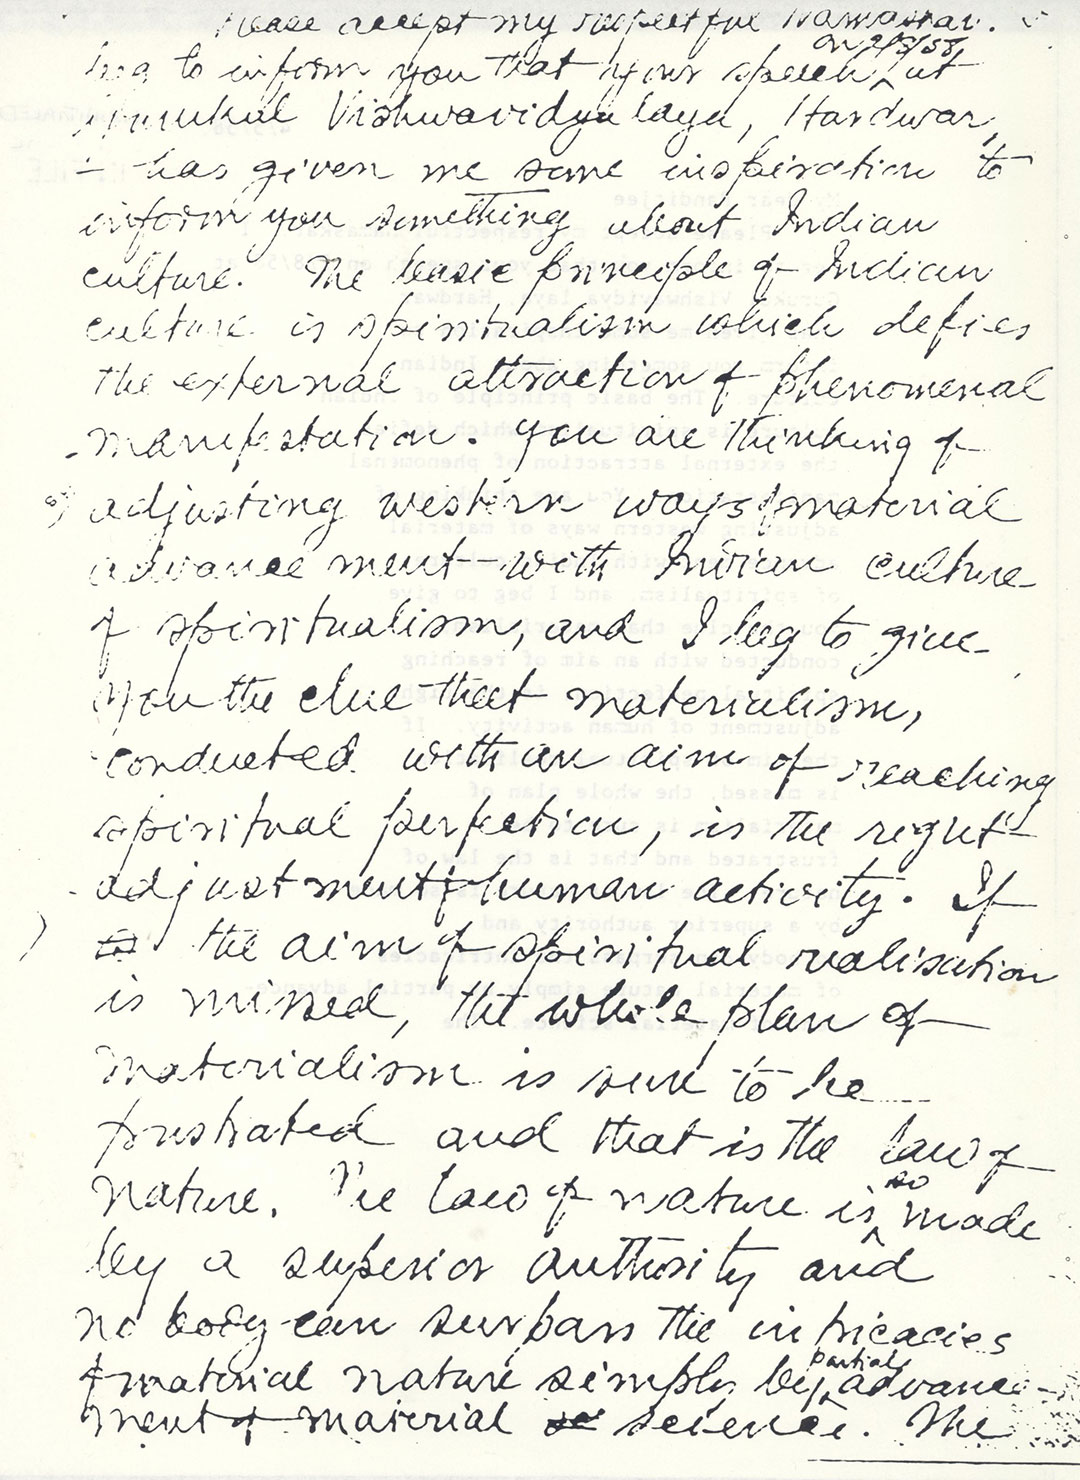 Please accept my respectful Namaskar.
beg to inform you that your speech on 2/8/58, at
Gurukul Vishwavidyalaya, Hardwar,
has given me some inspiration to
inform you something about Indian
culture. The basic principle of Indian
culture is spiritualism which defies
the external attraction of phenomenal
manifestation. You are thinking of
adjusting western ways of material
advance ment with Indian culture
of spiritualism, and I beg to give
you the clue that materialism,
conducted with an aim of reaching
spiritual perfection, is the right
adjustment of human activity. If
the aim of spiritual realisation
is missed, the whole plan of
materialism is sure to be
frustrated and that is the law of
nature. The law of nature is so made
by a superior authority and
no body can surpass the intricacies
of material nature simply by partial advance-
ment of material science. The